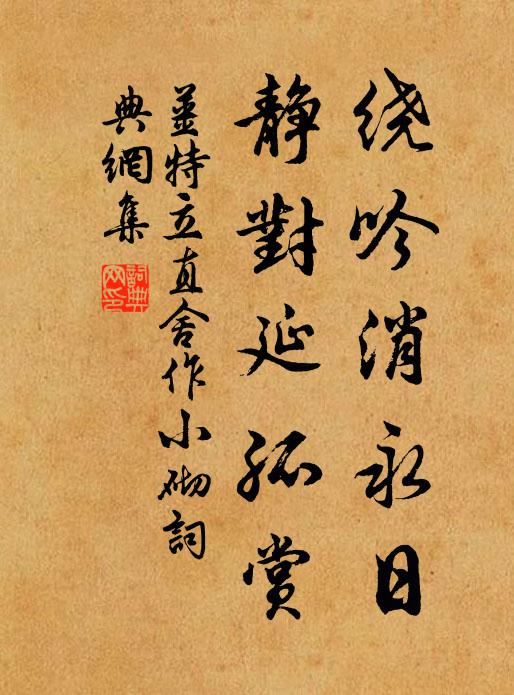 绕吟消永日
静對延孤赏
姜特立直舍作小砌詞
典網集
詞典网印